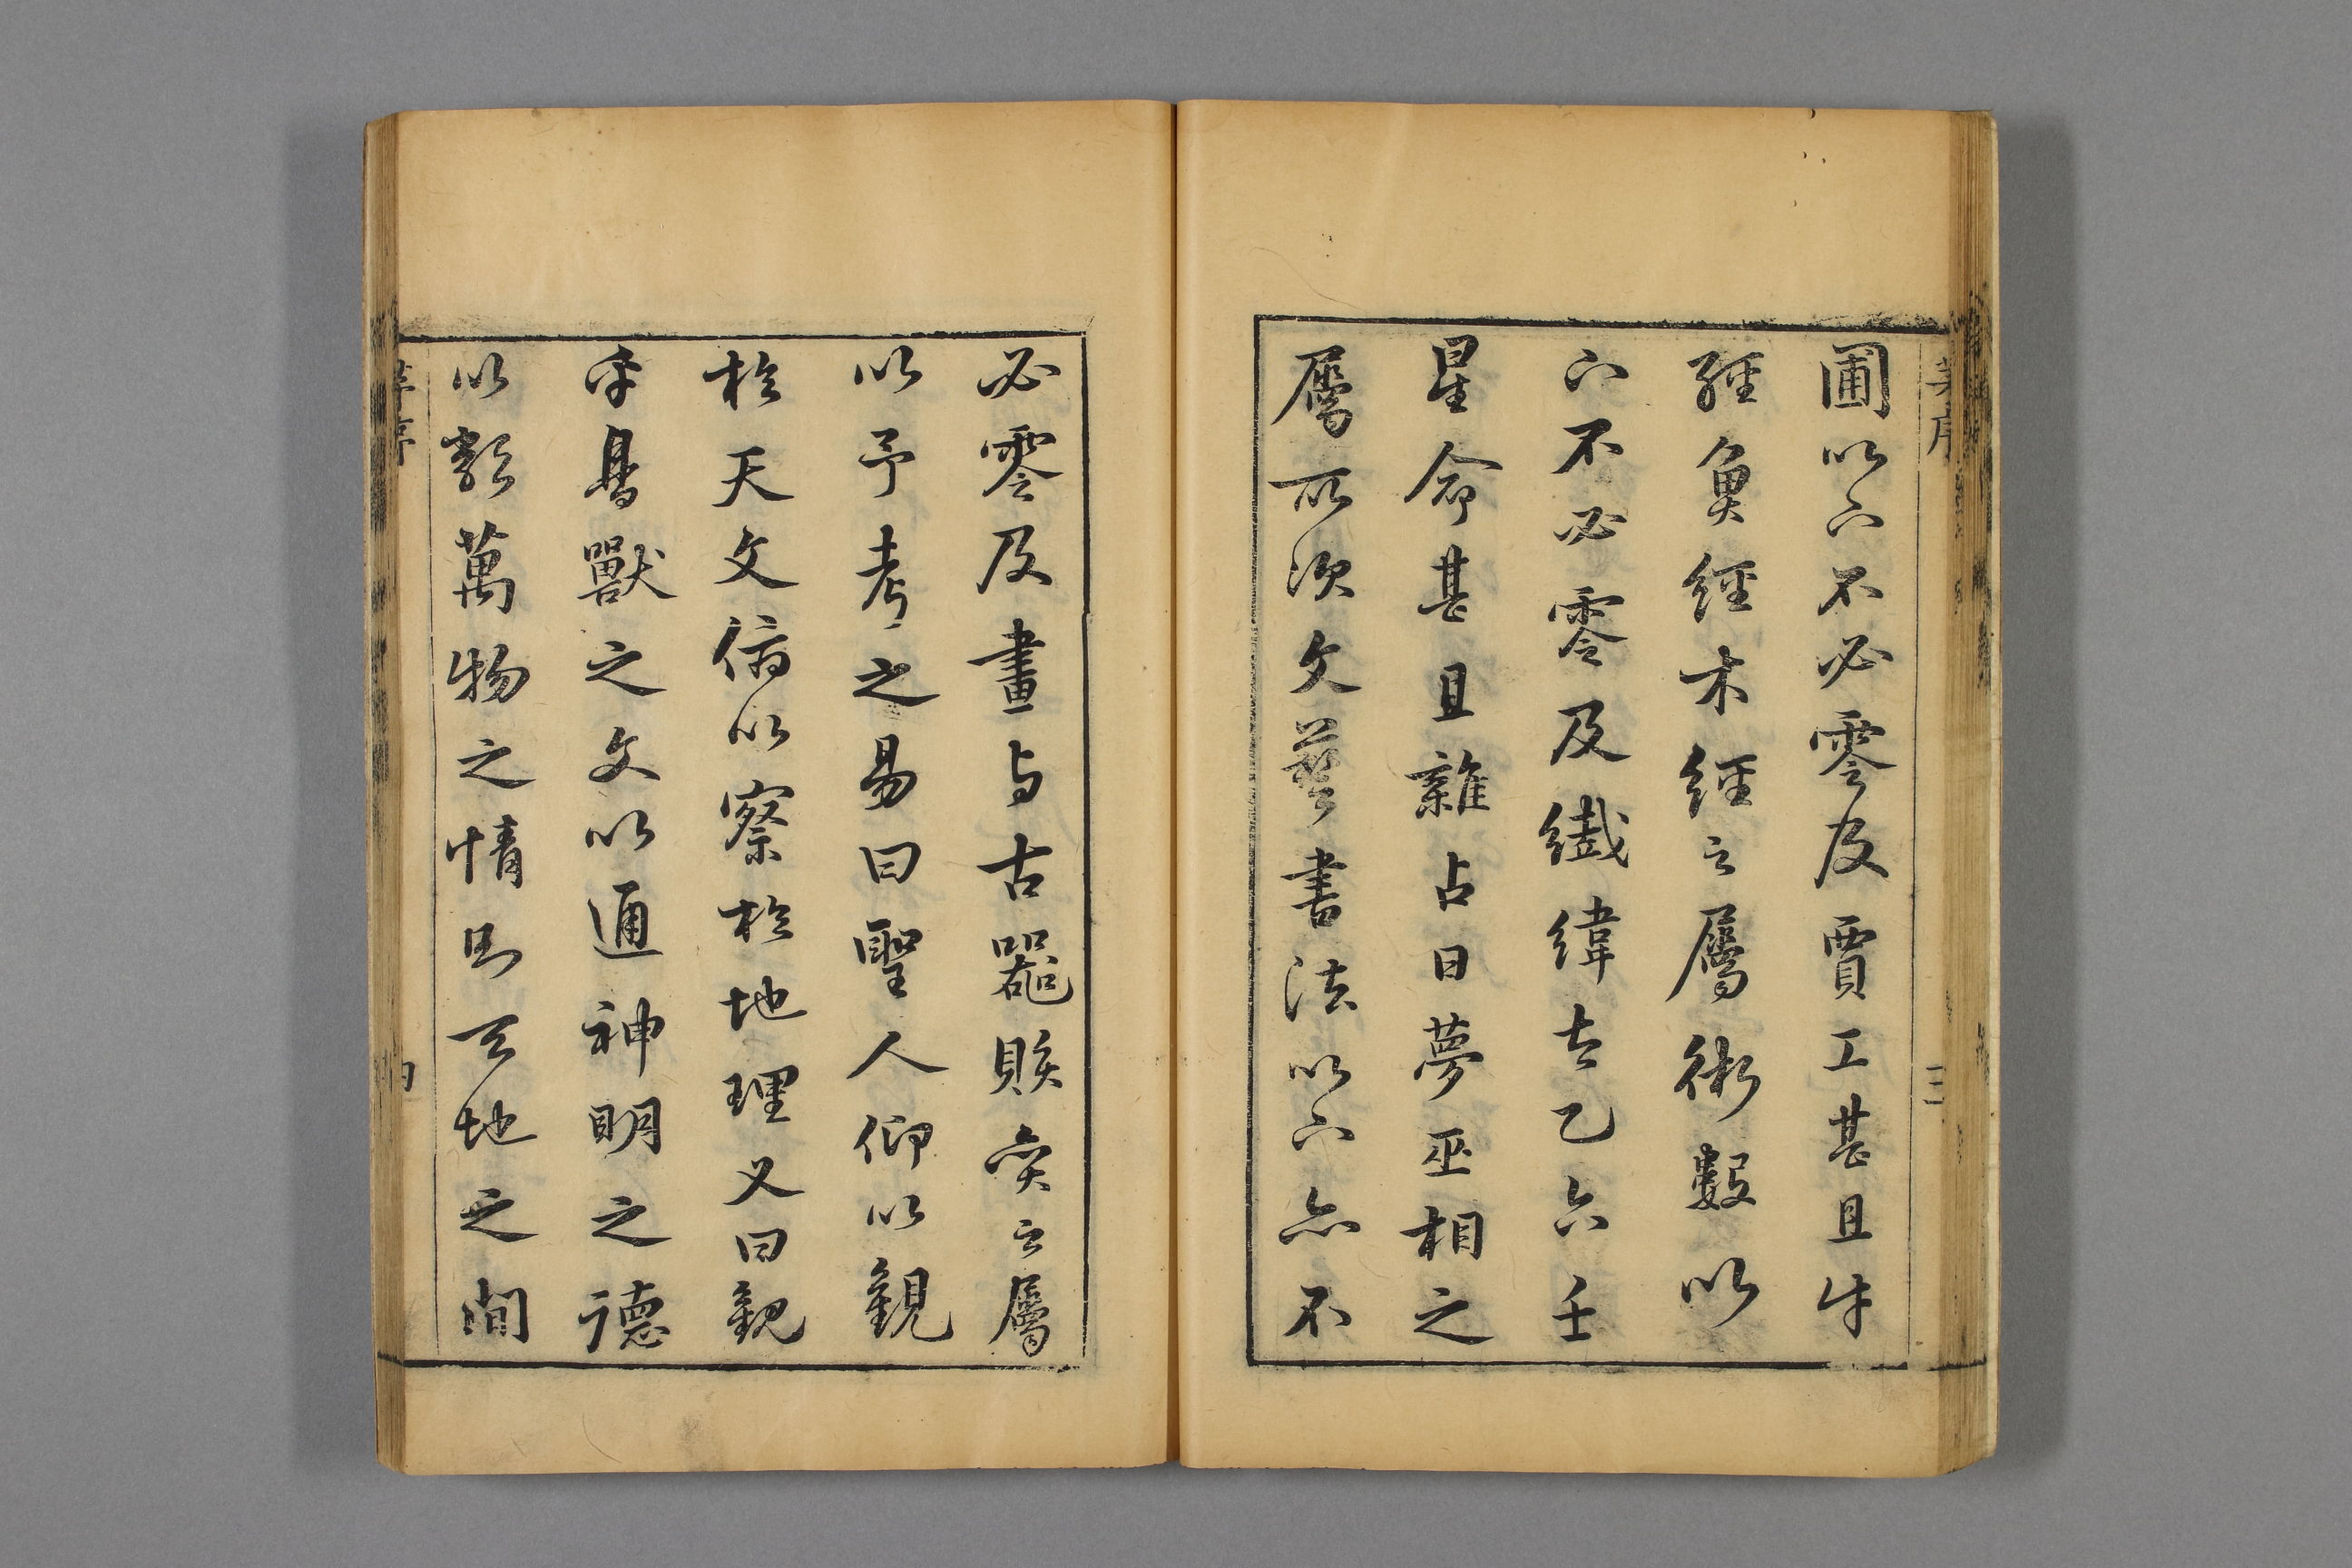 圃以下不必零及賈工甚且牛
經魚經木經之屬術數以
下不必零及纎緯太乙六壬
星命甚且雜占日夢巫相之
屬所次文藝書法以下亦不
必零及畫与古器賅奕之屬
以予考之易曰聖人仰以觀
於天文俯以察於地理又曰觀
乎鳥獸之文以通神明之德
以類萬物之情則天地之間